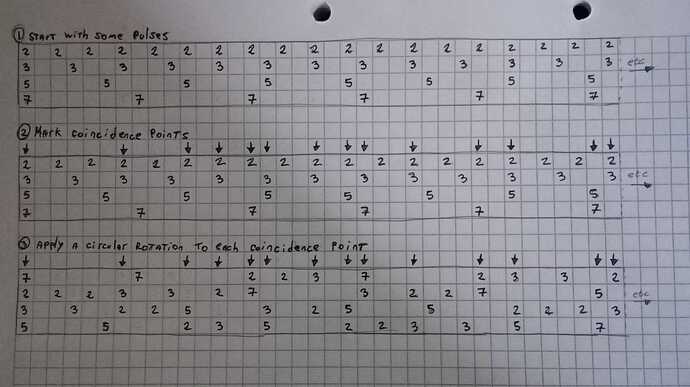 ① START with some Pulses
2 2 2 2 2 2 2 2 2 2 2 2 2 2 2 2 2 2 2
3 3 3 3 3 3 3 3 3 3 3 3 3 etc
5 5 5 5 5 5 5 5
7 7 7 7 7 7
② MARK Coincidence Points
2 2 2 2 2 2 2 2 2 2 2 2 2 2 2 2 2 2 2
3 3 3 3 3 3 3 3 3 3 3 3 3 etc
5 5 5 5 5 5 5 5
7 7 7 7 7 7
③ APPLY A Circular ROTATION To each Coincidence POINT
7 7 2 2 3 7 2 3 3 2
2 2 2 3 3 2 7 3 2 2 7 5 etc
3 3 2 2 5 3 2 5 5 2 2 2 3
5 5 2 3 5 2 2 3 3 5 7